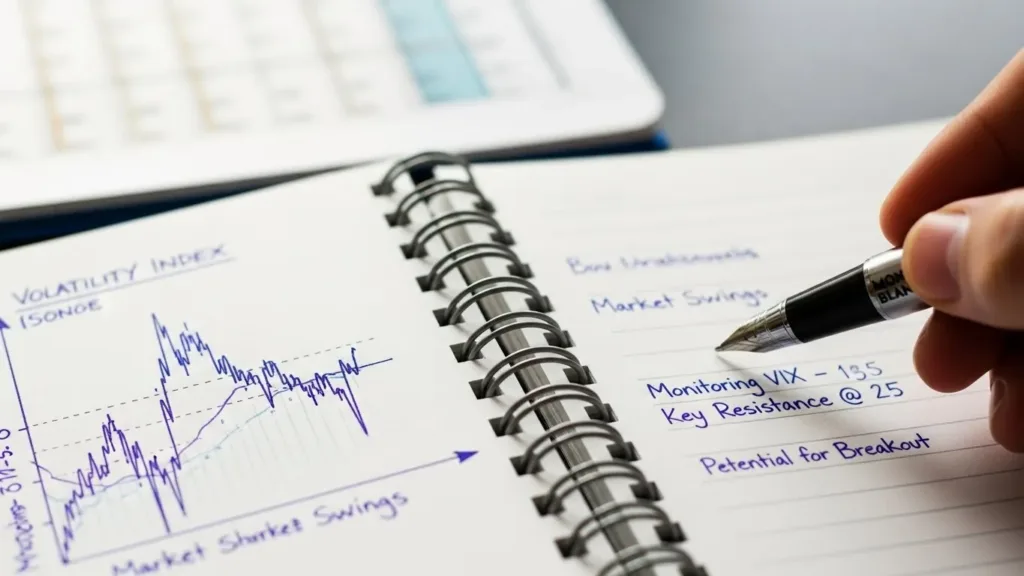 VOLATILITY INDEX
Market Shorket Swings
Market Swings
Monitoring VIX – 135
Key Resistance @ 25
Potential for Breakout
MON
BLAN